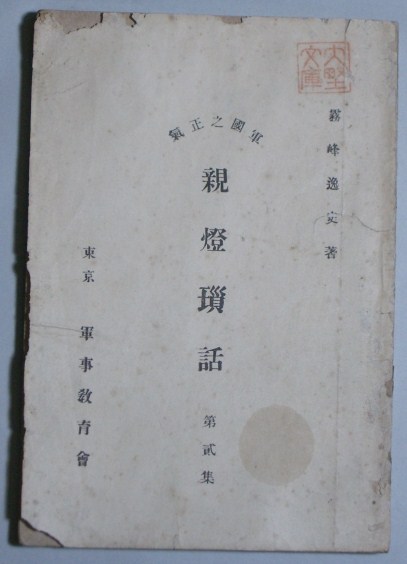 大堅文庫
霧峰逸史著
軍國之正氣
親燈瑣話
第貳集
東京 軍事教育會